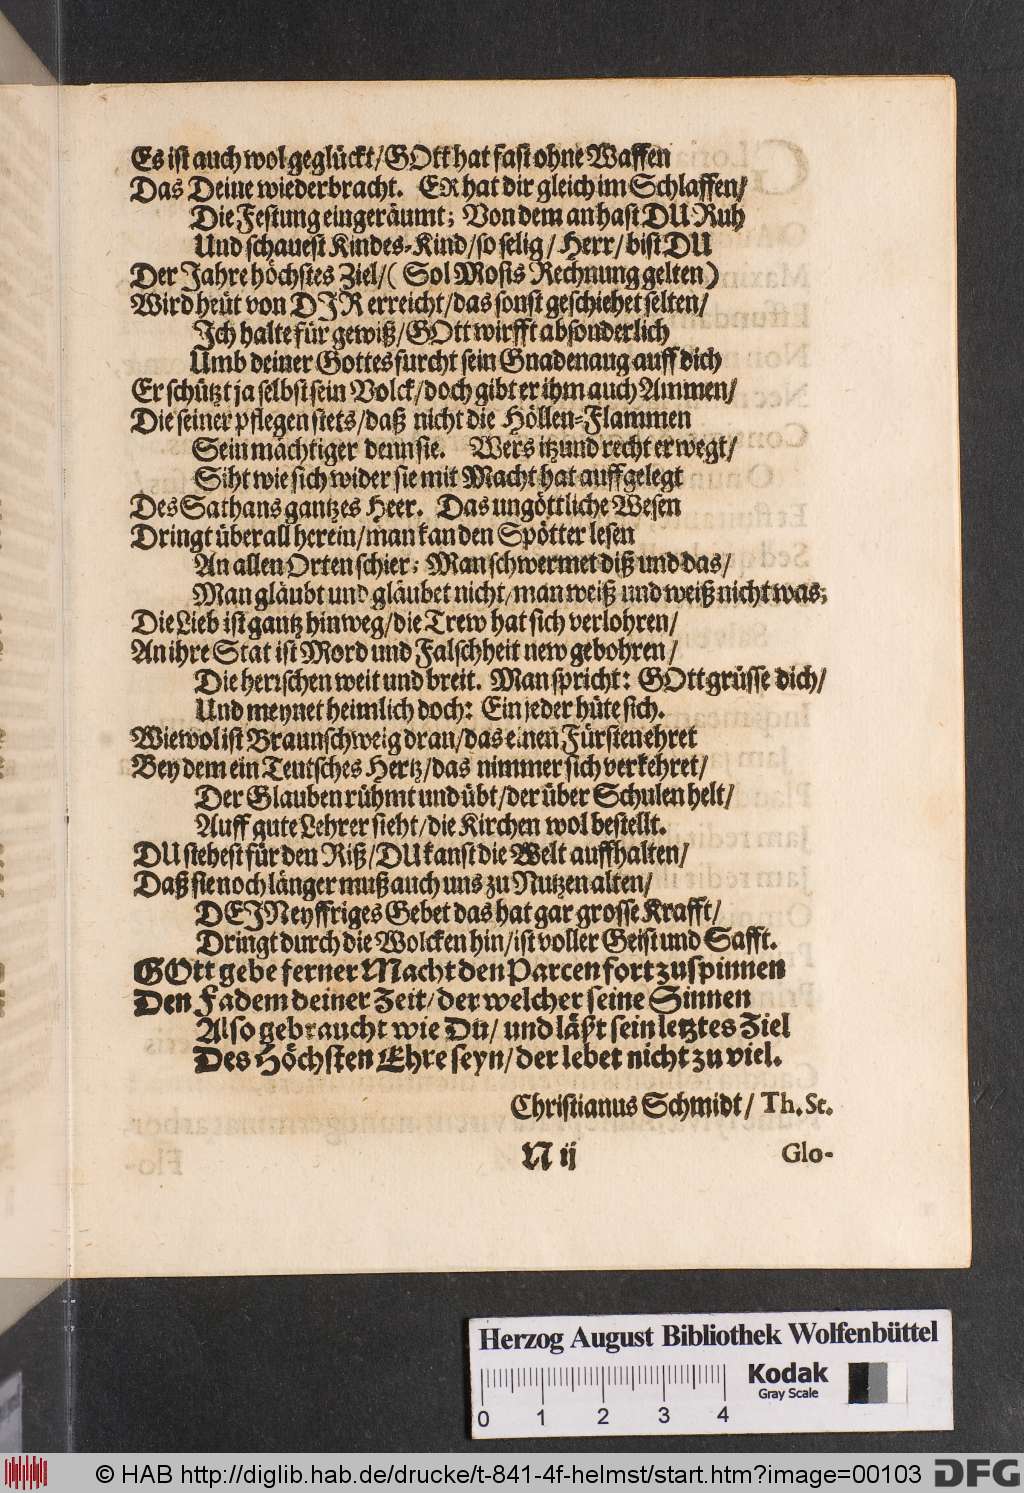 Es ist auch wol geglückt/GOtt hat fast ohne Waffen
Das Deine wiederbracht. ER hat dir gleich im Schlaffen/
Die Festung eingeräumt; Von dem an hast DU Ruh
Und schauest Kindes-Kind/so selig/ Herr/ bist DU
Der Jahre höchstes Ziel/( Sol Mosis Rechnung gelten)
Wird heüt von DJR erreicht/das sonst geschiehet selten/
Ich halte für gewiß/GOtt wirfft absonderlich
Umb deiner Gottesfurcht sein Gnadenaug auff dich
Er schützt ja selbst sein Volck/doch gibt er ihm auch Ammen/
Die seiner pflegen stets/daß nicht die Höllen-Flammen
Sein mächtiger denn sie. Wers itzund recht erwegt/
Siht wie sich wider sie mit Macht hat auffgelegt
Des Sathans gantzes Heer. Das ungöttliche Wesen
Dringt überall herein/man kan den Spötter lesen
An allen Orten schier; Man schwermet diß und das/
Man gläubt und gläubet nicht/man weiß und weiß nicht was;
Die Lieb ist gantz hinweg/die Trew hat sich verlohren/
An ihre Stat ist Mord und Falschheit new gebohren/
Die herrschen weit und breit. Man spricht: GOtt grüsse dich/
Und meynet heimlich doch: Ein jeder hüte sich.
Wie wol ist Braunschweig dran/das einen Fürsten ehret
Bey dem ein Teutsches Hertz/das nimmer sich verkehret/
Der Glauben rühmt und übt/der über Schulen helt/
Auff gute Lehrer sieht/die Kirchen wol bestellt.
DU stehest für den Riß/DU kanst die Welt auffhalten/
Daß sie noch länger muß auch uns zu Nutzen alten/
DEJN eyffriges Gebet das hat gar grosse Krafft/
Dringt durch die Wolcken hin/ist voller Geist und Safft.
GOtt gebe ferner Macht den Parcen fort zu spinnen
Den Fadem deiner Zeit/der welcher seine Sinnen
Also gebraucht wie Du/ und läßt sein letztes Ziel
Des Höchsten Ehre seyn/der lebet nicht zu viel.
Christianus Schmidt/ Th. St.
N ij
Glo-
Herzog August Bibliothek Wolfenbüttel
Kodak
Gray Scale
0 1 2 3 4
© HAB http://diglib.hab.de/drucke/t-841-4f-helmst/start.htm?image=00103
DFG